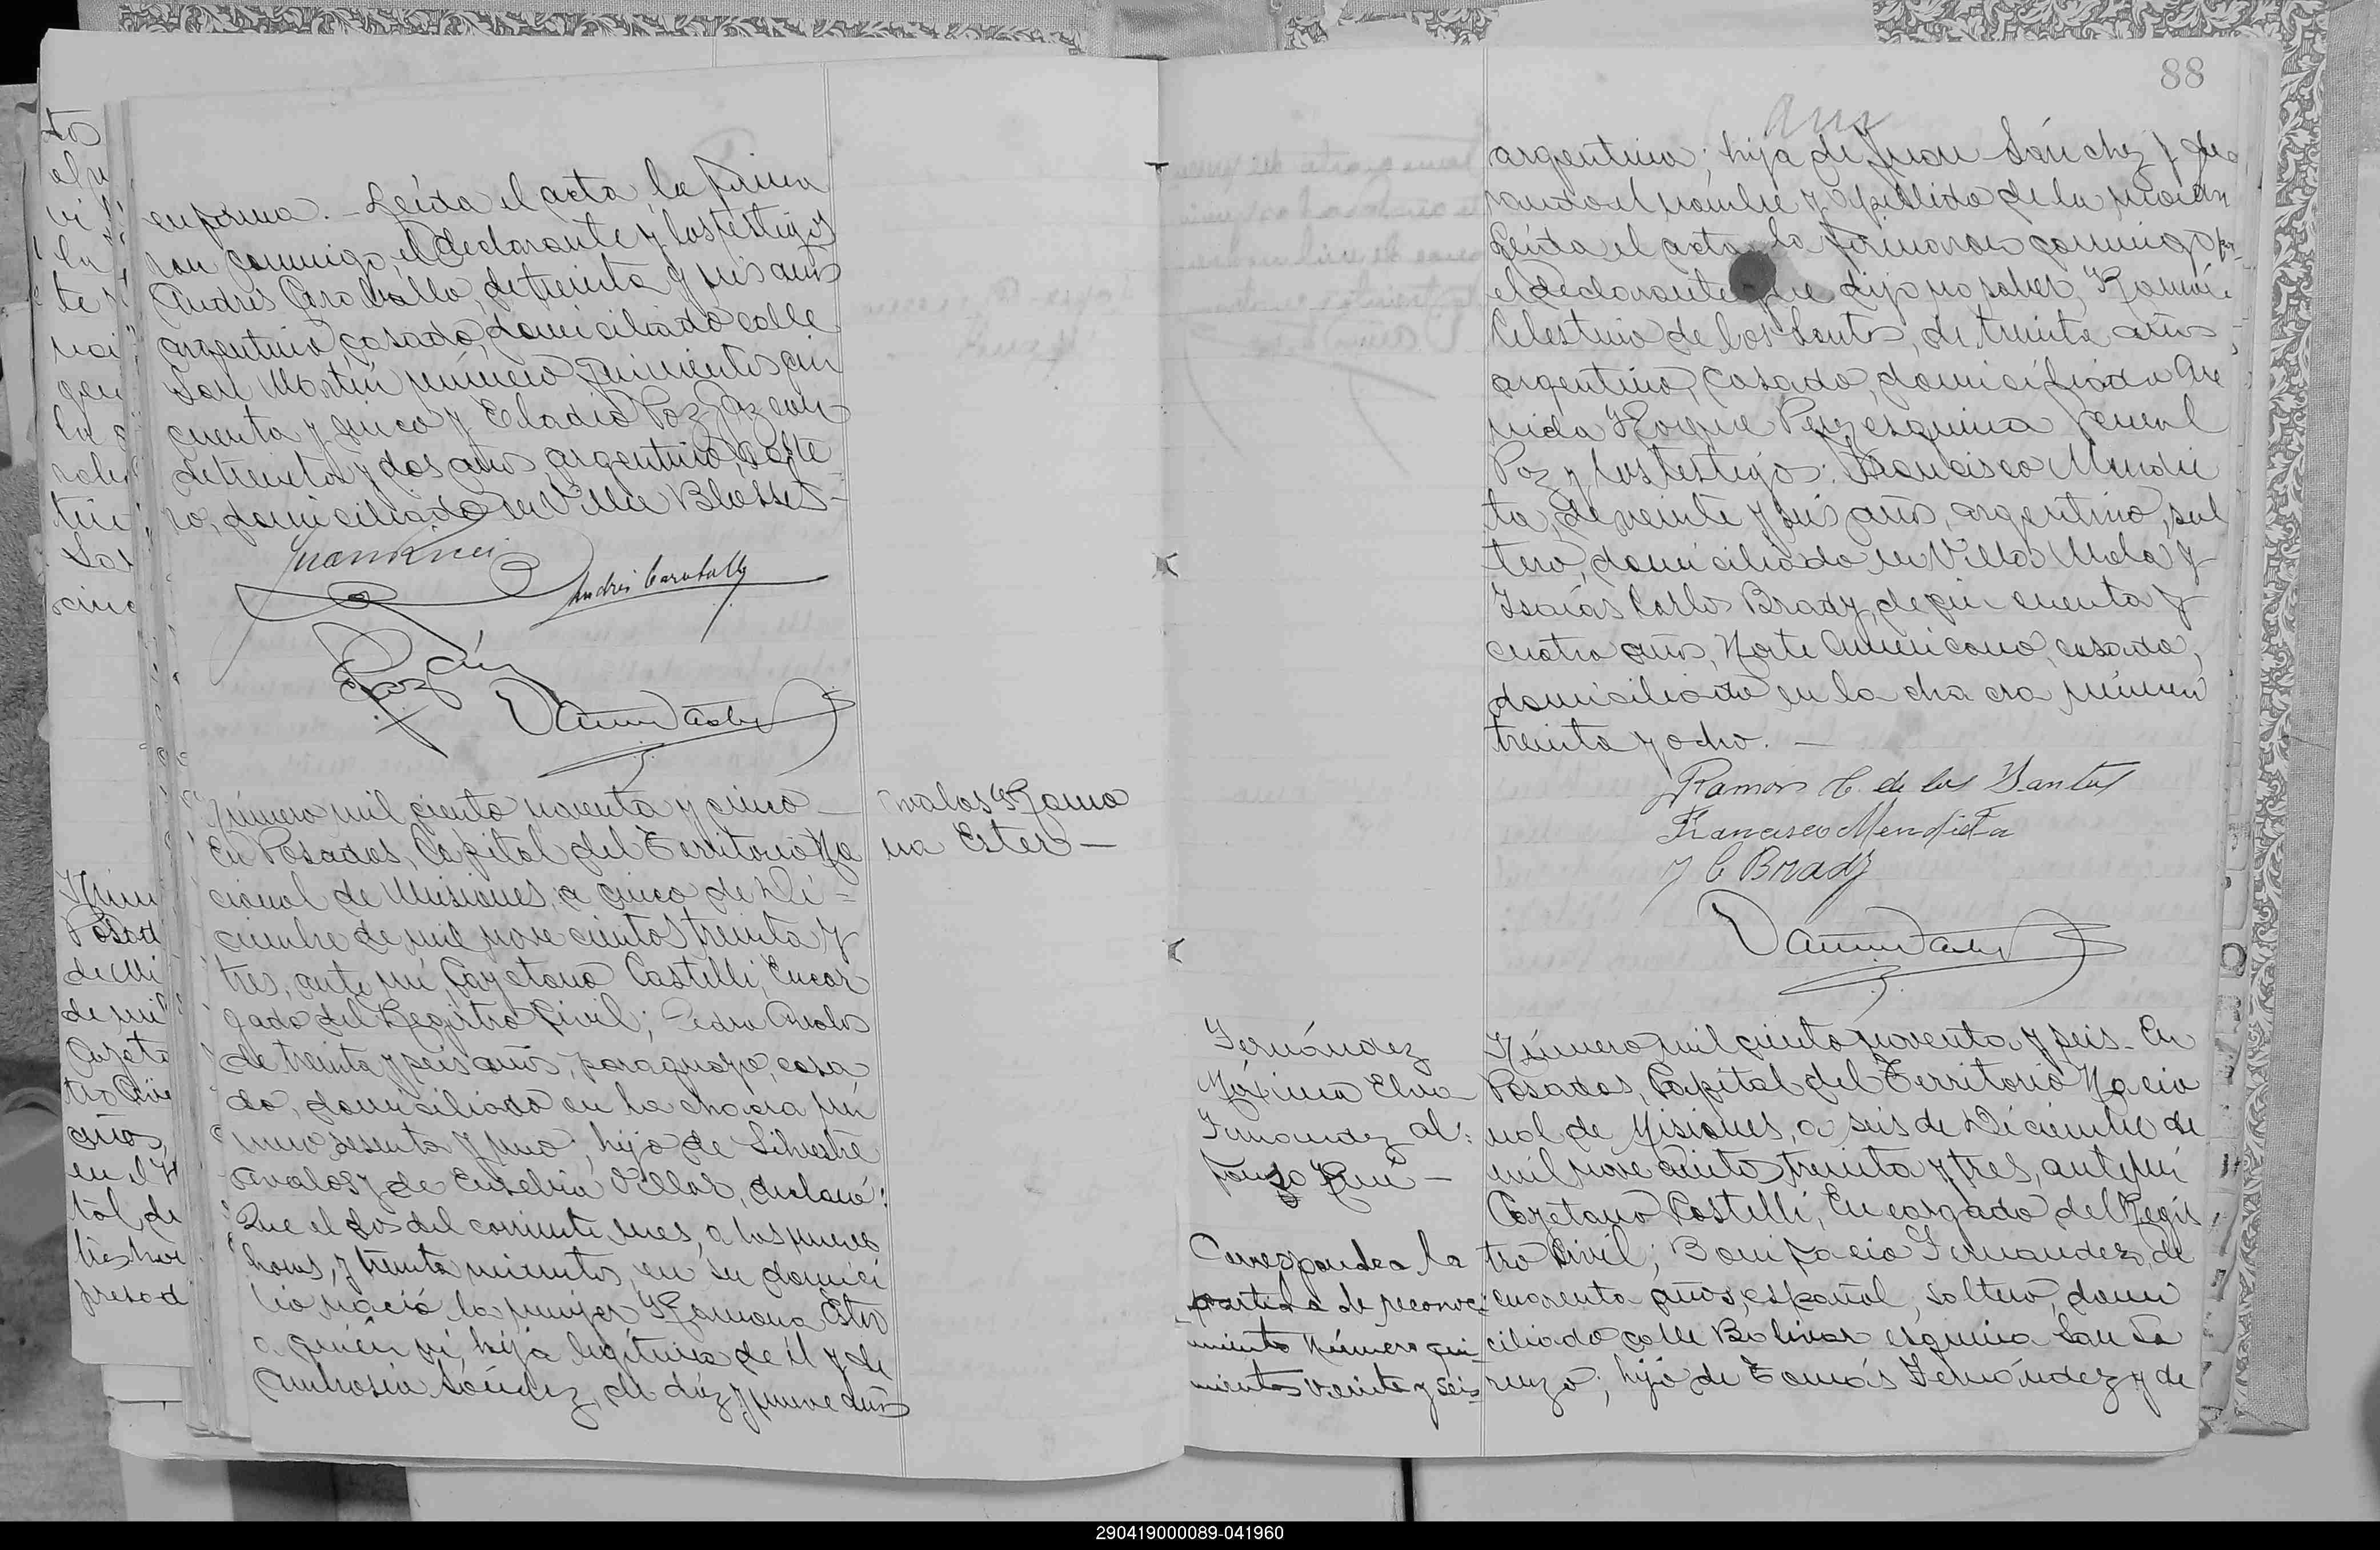 en forma. - Leída el acta, la firma
ron conmigo, el declarante y los testigos
Andrés Caraballo, de treinta y seis años
argentino, casado, domiciliado calle
San Martín número quinientos cin
cuenta y cinco y Eladio Paz
de treinta y dos años, argentino, solte
ro, domiciliado en Villa Blosset -
Andrés Caraballo
Paz
Número mil ciento noventa y cinco -
En Posadas, Capital del Territorio Na
cional de Misiones, a cinco de Di =
ciembre de mil novecientos treinta y
tres, ante mí, Cayetano Castelli, Encar
gado del Registro Civil; Pedro Avalos
de treinta y seis años, paraguayo, casa
do, domiciliado en la chacra nú
mero sesenta y uno, hijo de Silvestre
Avalos y de Eusebia Villar, declaró:
Que el dos del corriente mes, a las nueve
horas, y treinta minutos, en su domici
lio nació la mujer Ramona Ester
a quién ví, hija legítima de él y de
Ambrosia Sánchez, de diez y nueve años
valos Ramo
na Ester -
88
argentina; hija de Juan Sánchez y
el nombre y apellido de la
Leída el acta, la firmaron conmigo, por
el declarante que dijo no saber, Ramón
Celestino de los Santos, de treinta años,
argentino, casado, domiciliado Ave
nida Roque Perez esquina General
Paz y los testigos: Francisco Mendie
ta, de veinte y seis años, argentino, sol
tero, domiciliado en Villa Mola y
Isaías Carlos Brady, de cin cuenta y
cuatro años, Norte Americano, casado,
domiciliado en la cha cra número
treinta y ocho. -
Ramon C. de los Santos
Francisco Mendieta
Y C Brady
Fernández
Máxima Elva
Fernandez al:
Corresponde a la
partida de reconoci
miento Número qui-
nientos veinte y seis
Número mil ciento noventa y seis - En
Posadas, Capital del Territorio Nacio
nal de Misiones, a seis de Diciembre de
mil novecientos treinta y tres, ante mí
Cayetano Castelli, Encargado del Regis
tro Civil; Bonifacio Fernandez, de
cuarenta años, español, soltero, domi
ciliado calle Bolivar esquina San Lo
renzo; hijo de Tomás Fernández y de
290419000089-041960